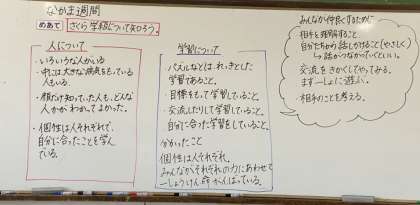 なかま週間
めあて さくら学級について知ろう。
人について
・いろいろな人がいる
・中には大きな病気をもっている
人もいる。
・顔だけ知っていた人も、どんな
人かがわかってよかった。
・個性は人それぞれで、
自分に合ったことを学ん
でいる。
学習について
・パズルなどは、れっきとした
学習であること。
・目標をもって学習していること。
・交流したりして学習していること。
・自分に合った学習をしていること。
分かったこと
個性は人それぞれ。
みんながそれぞれの力にあわせて
一しょうけん命がんばっている。
みんなが仲良くするために
相手を理解すること
自分たちから話しかけること(やさしく)
→話がつながっていくといい。
交流をきかくしてやってみる。
まず一しょに遊ぶ。
・相手のことを考える。